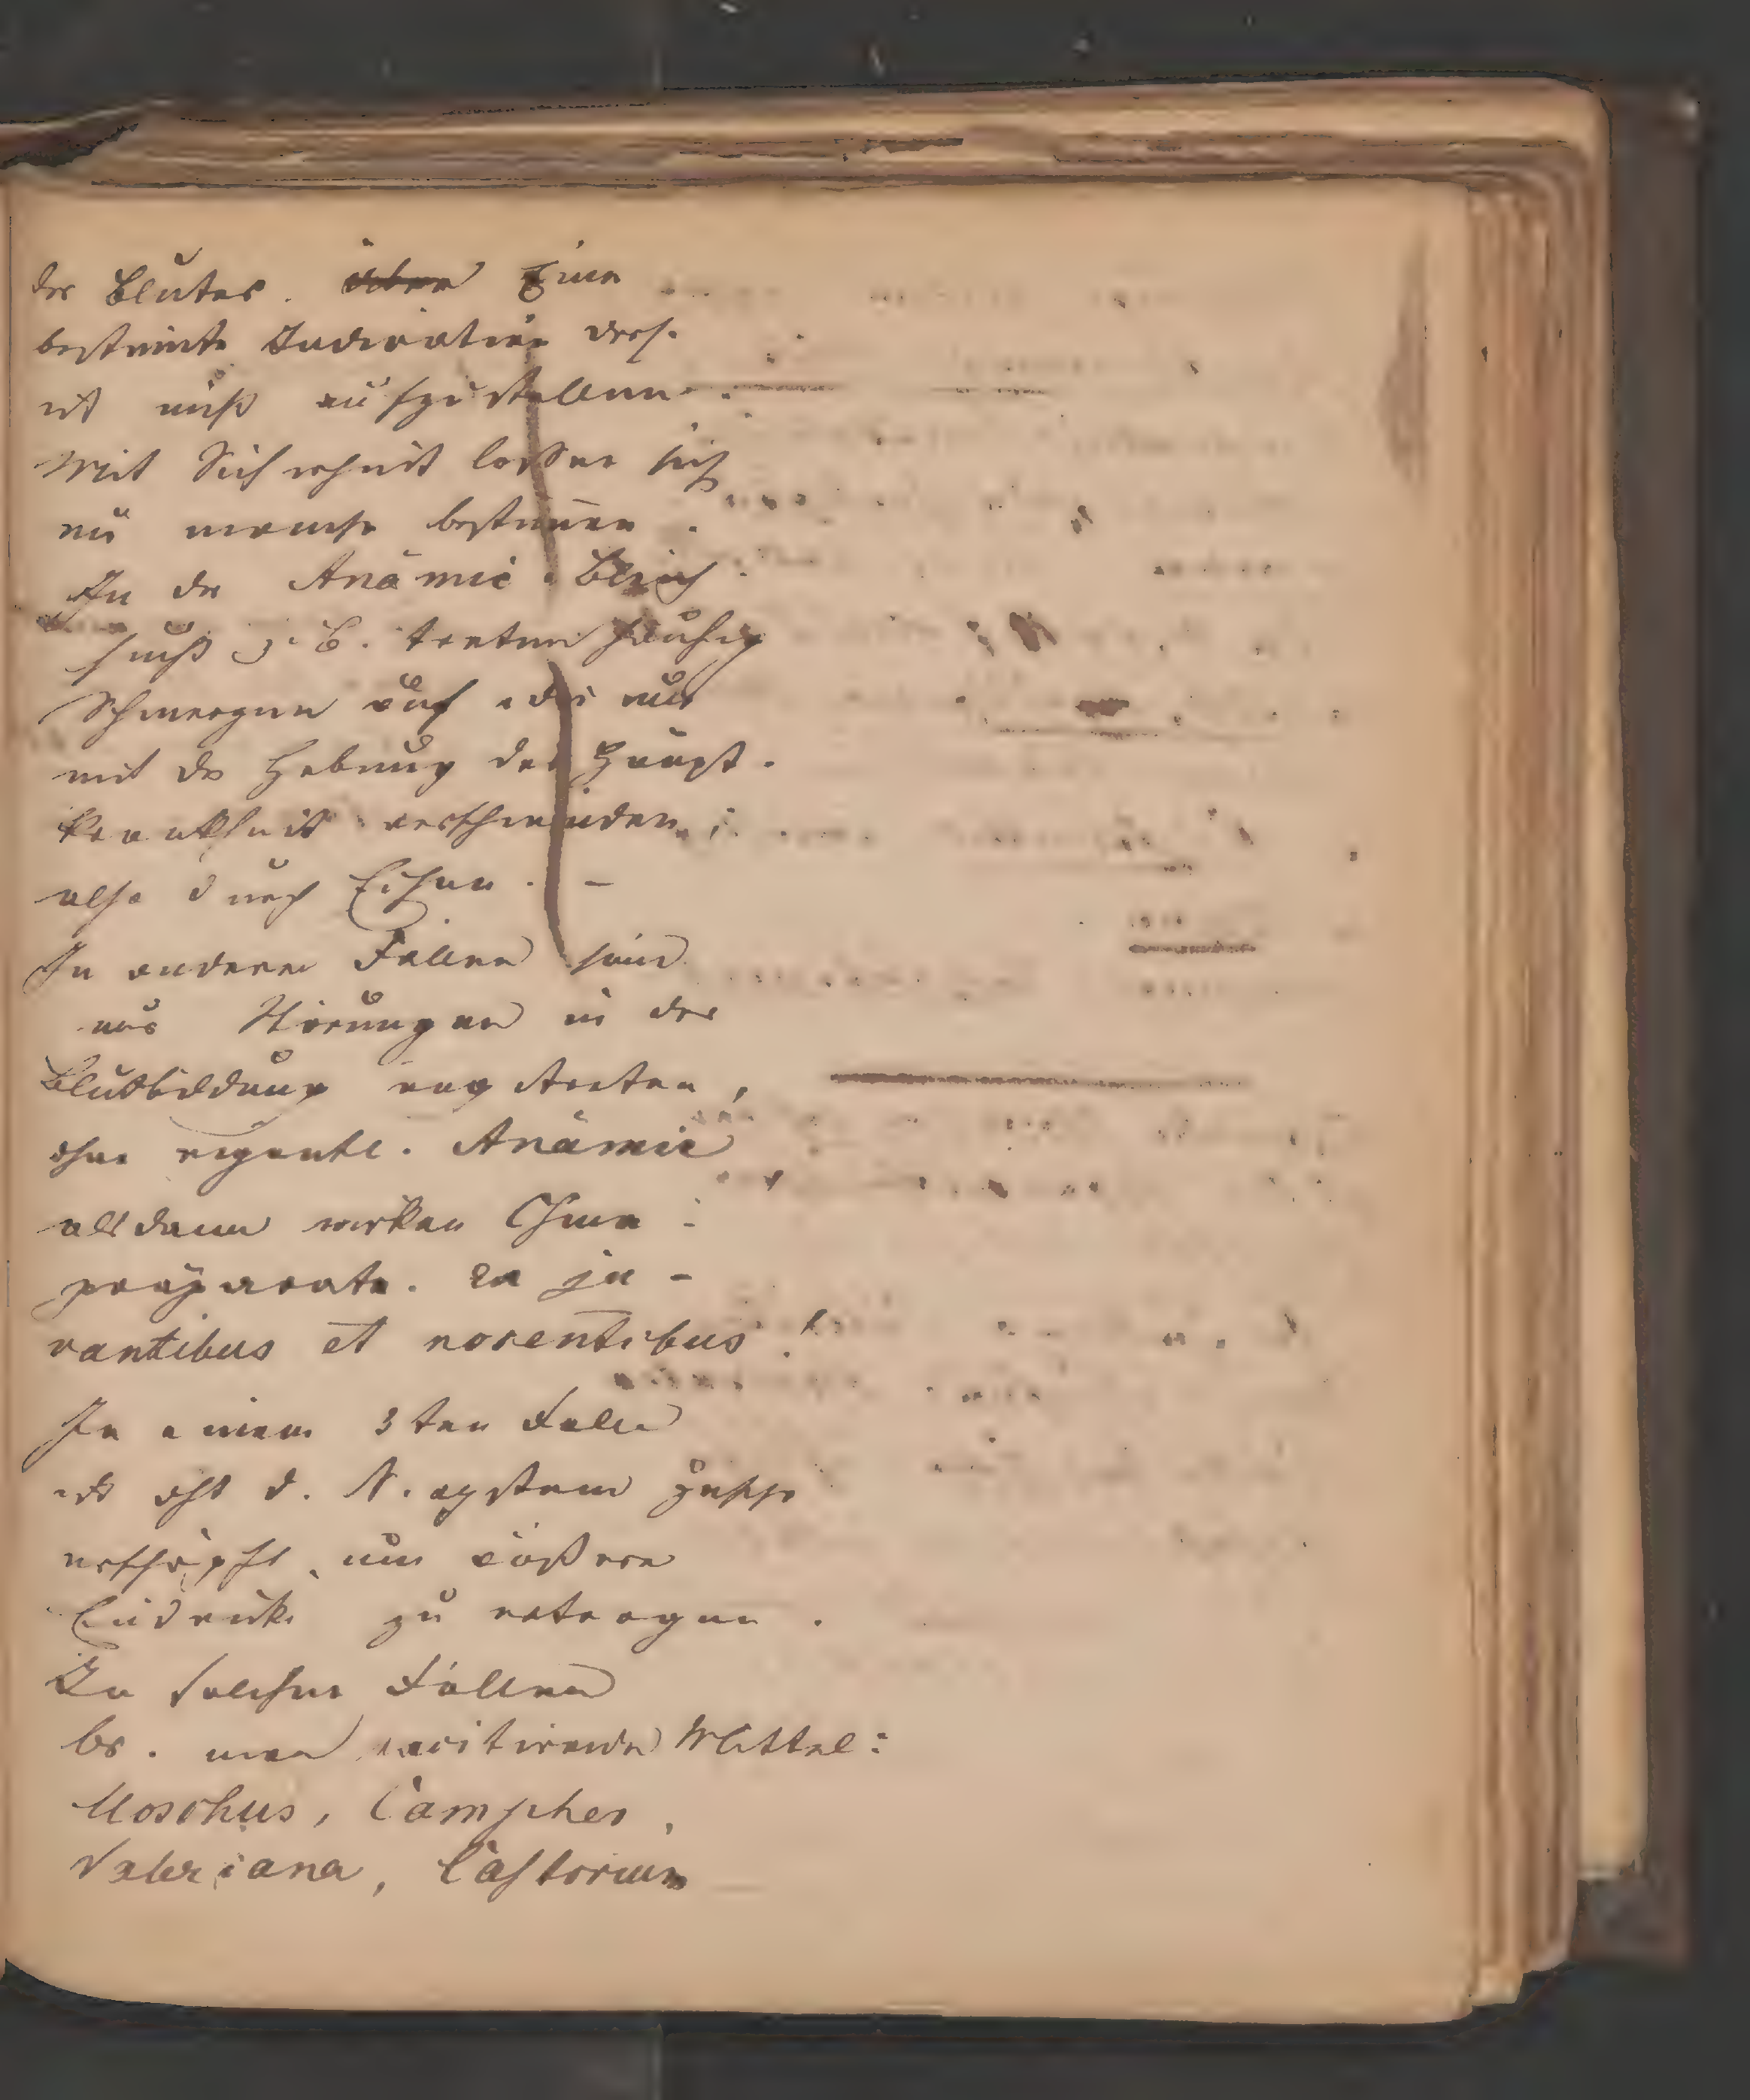 des Blutes. Eine
bestimte Indication ders.
ist nicht aufzustellen.
Mit Sicherheit lassen sich
nur manche bestimen.
In der Anämie. Bleich-
sucht z. B. treten häufig
Schmerzen auf die nur
mit der Hebung der Haupt-
krankheit verschwinden;
also durch Eisen. –
In anderen Fällen sind
nur Störungen in der
Blutbildung eingetreten,
ohne eigentl. Anämie
alsdann wirken China-
präparate. Ex ju-
vantibus et nocentibus!
In einem 3ten Falle
ist oft d. N. system
erschöpft, um äußere
Eindrücke zu ertragen.
In solchen Fällen
br. man excitirende Mittel:
Moschus, Campher,
Valeriana, Castorium